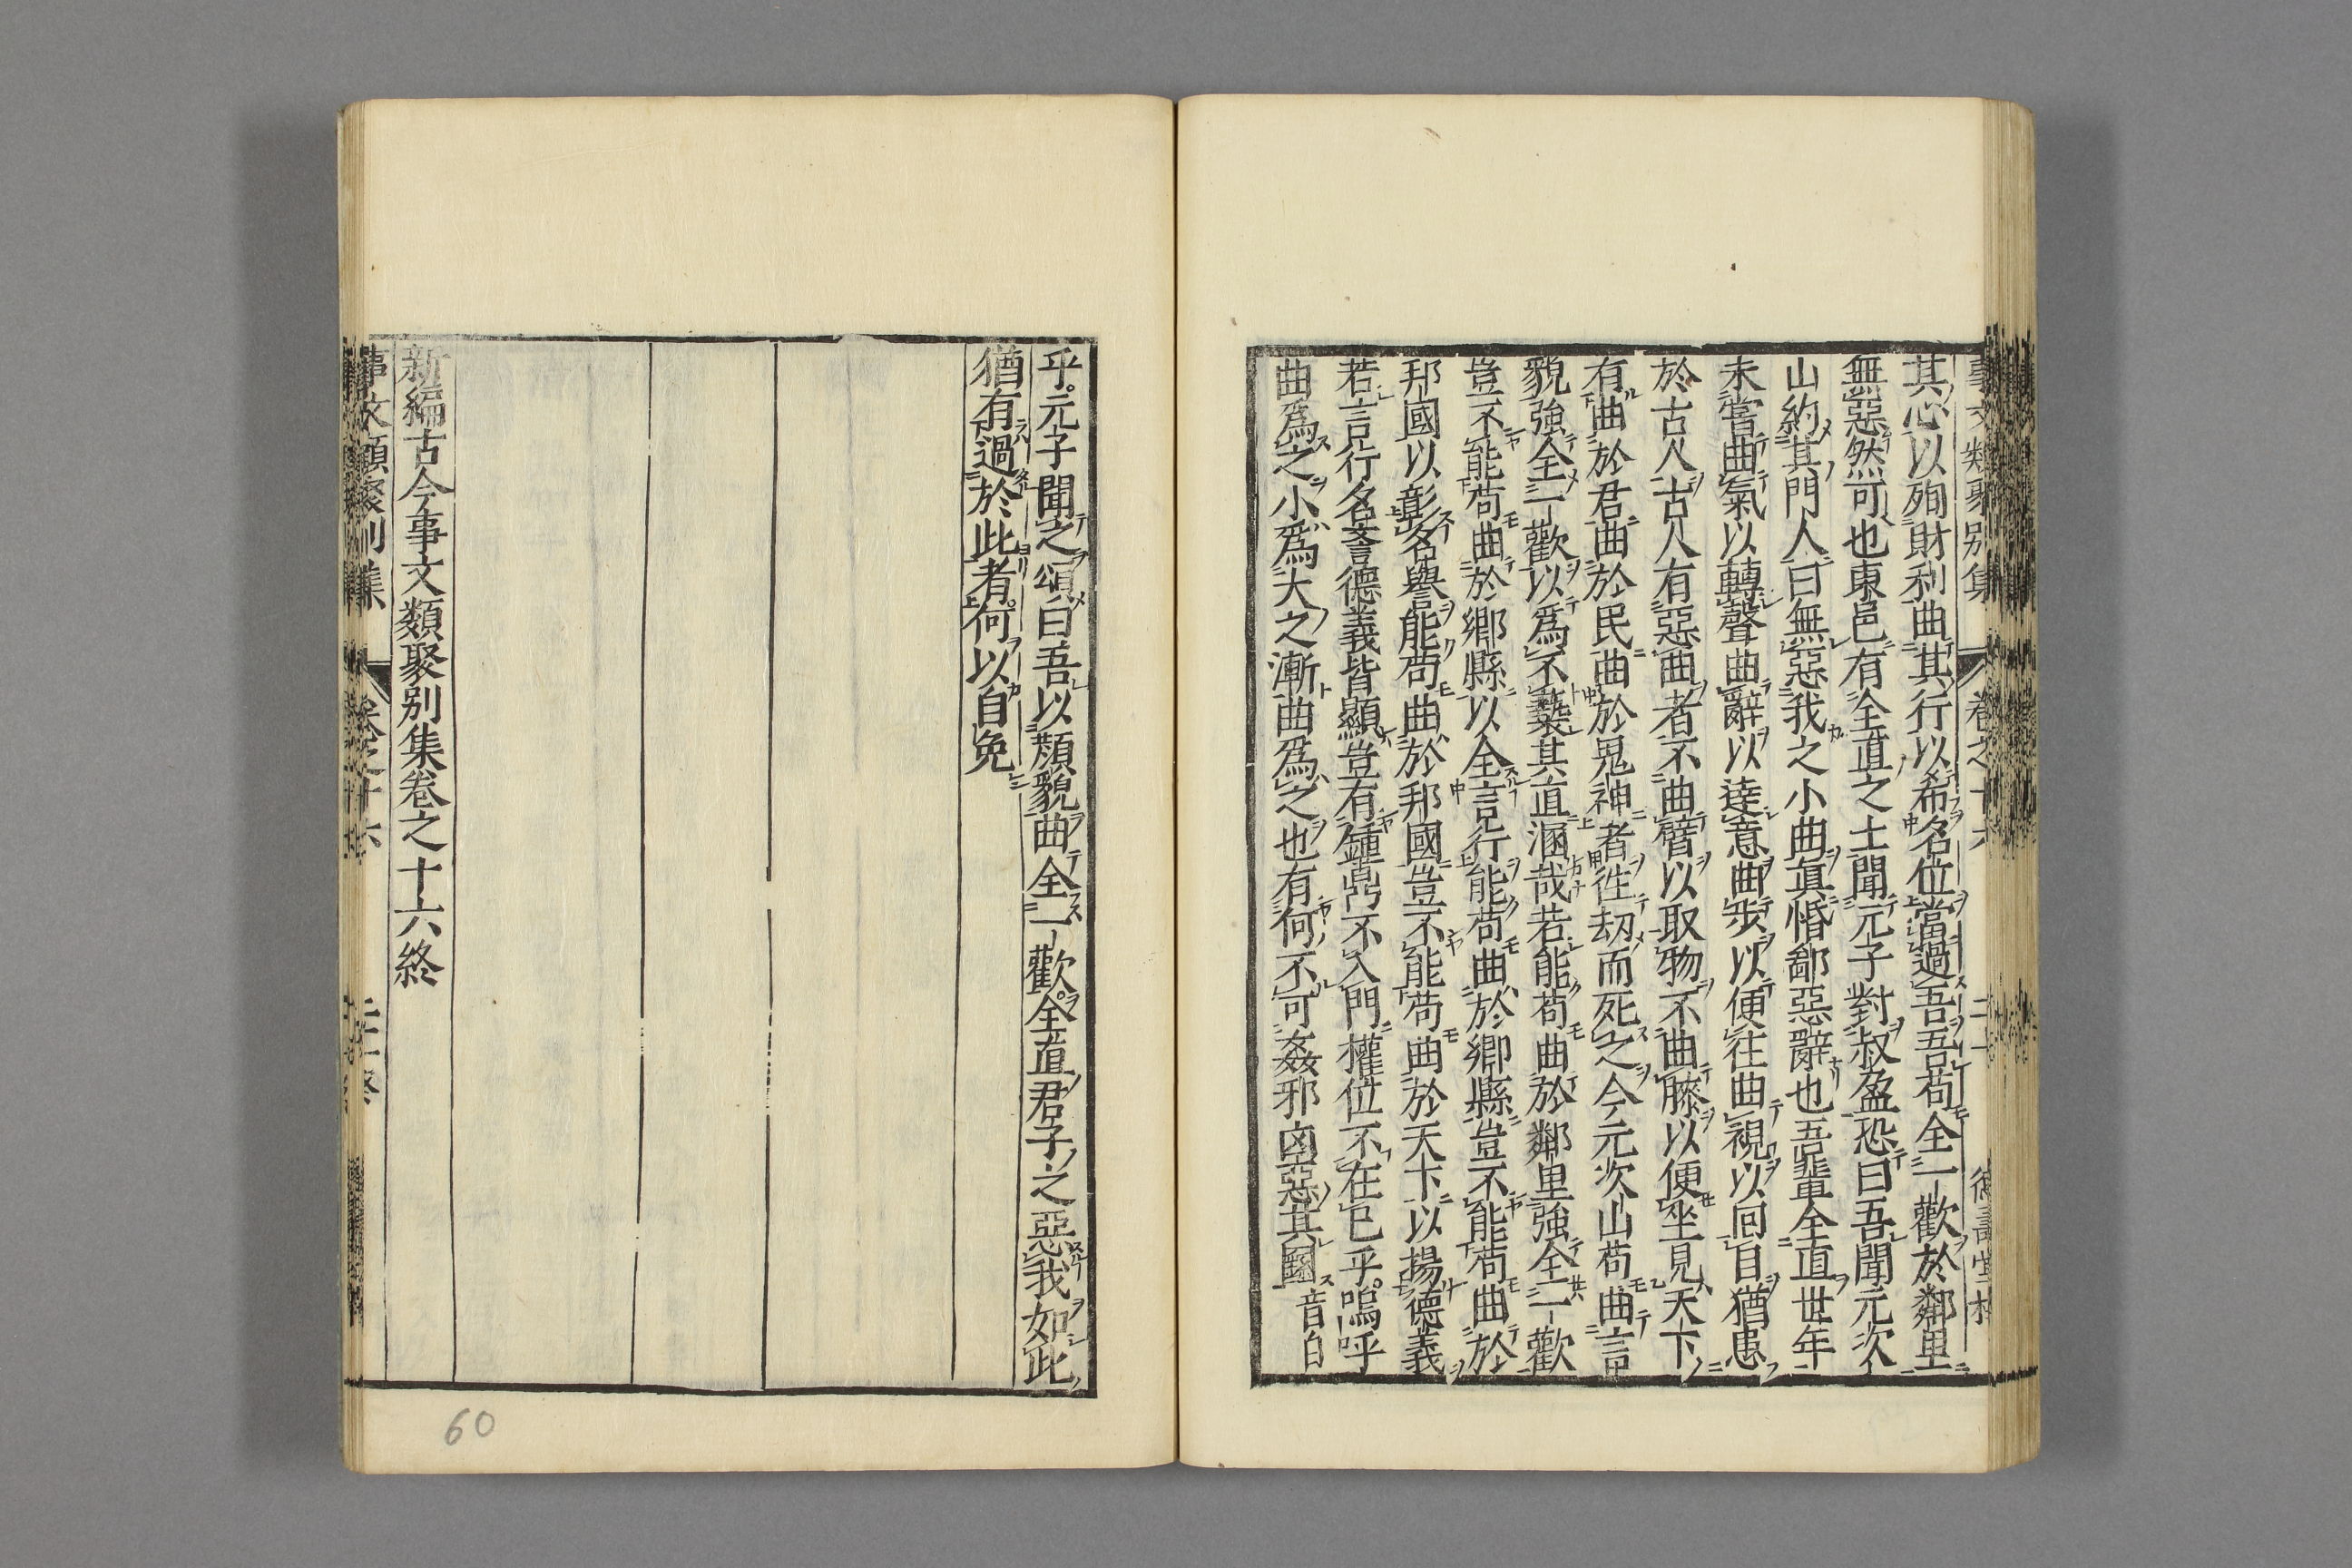 其心以殉財利曲其行以希名位當過吾吾苟全一歡於鄰里
無惡然可也東邑有全直之士聞元子對叔盈恐曰吾聞元次
山約其門人曰無惡我之小曲真惛鄙惡辭也吾輩全直世年
未嘗曲氣以轉聲曲辭以達意曲步以便往曲視以回目猶患
於古人古人有惡曲者不曲臂以取物不曲膝以便坐見天下
有曲於君曲於民曲於鬼神者徃刧而死之今元次山苟曲言
貌強全一歡以爲不蘂其直溷哉若能苟曲於鄰里強全一歡
豈不能苟曲於鄉縣以全言行能苟曲於鄉縣豈不能苟曲於
邦國以彰名譽能苟曲於邦國豈不能苟曲於天下以揚德義
若言行名譽德義皆顯豈有鍾鼎不入門權位不在已乎嗚呼
曲爲之小爲大之漸曲爲之也有何不可姦邪凶惡其圖音由
乎元子聞之頌曰吾以顏貌曲全一歡全直君子之惡我如此
猶有過於此者何以自免
新編古今事文類聚别集卷之十六終
60